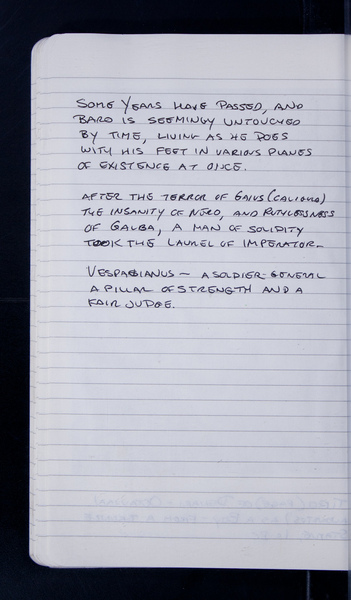 SOME YEARS HAVE PASSED, AND
BARO IS SEEMINGY UNTOUCHED
BY TIME, LIVING AS HE DOES
WITH HIS FEET IN VARIOUS PLANES
OF EXISTENCE AT ONCE.
AFTER THE TERROR OF GAIUS (CALIGULA)
THE INSANITY OF NERO, AND RUTHLESSNESS
OF GALBA, A MAN OF SOLIDITY
TOOK THE LAUREL OF IMPERATOR–
VESPASIANUS – A SOLDIER-GENERAL
A PILLAR OF STRENGTH AND A
FAIR JUDGE.